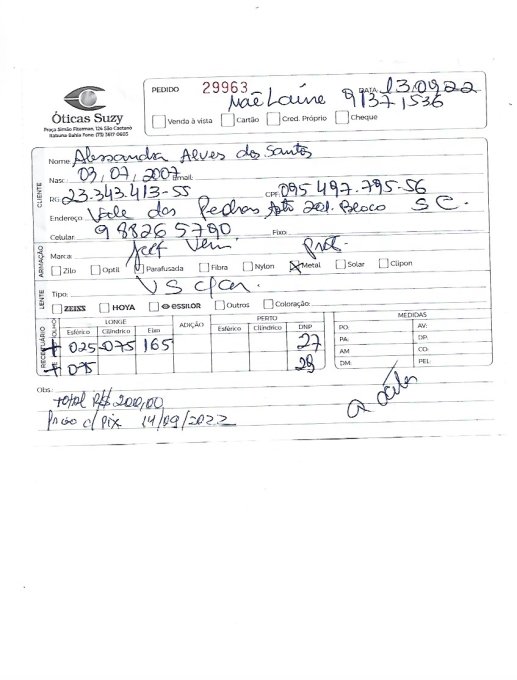 PEDIDO 29963 DATA 13.09.22
Mãe Laine 9 1371536
Óticas Suzy
Praça Simão Fiterman, 126 São Caetano
Itabuna Bahia Fone: (73) 3617-0605
Venda à vista Cartão Cred. Próprio Cheque
CLIENTE
Nome: Alessandra Alves dos Santos
Nasc: 03,07,2007 Email:
RG: 23.343.413-55 CPF: 095.497.795-56
Endereço: Vale das Pedras Apto 201. Bloco 5 C.
Celular: 9 8826 5790 Fixo:
ARMAÇÃO
Marca:
Zilo Optil Parafusada Fibra Nylon Metal Solar Clipon
LENTE
Tipo: VS
ZEISS HOYA essilor Outros Coloração:
RECEITUÁRIO
OLHO LONGE ADIÇÃO PERTO DNP MEDIDAS
Esférico Cilíndrico Eixo Esférico Cilíndrico
+ 025 -075 165 27
+ 075 28
PO: AV:
PA: DP:
AM: CO:
DM: PEL:
Obs.:
Total R$ 200,00
c/ Pix 14/09/2022